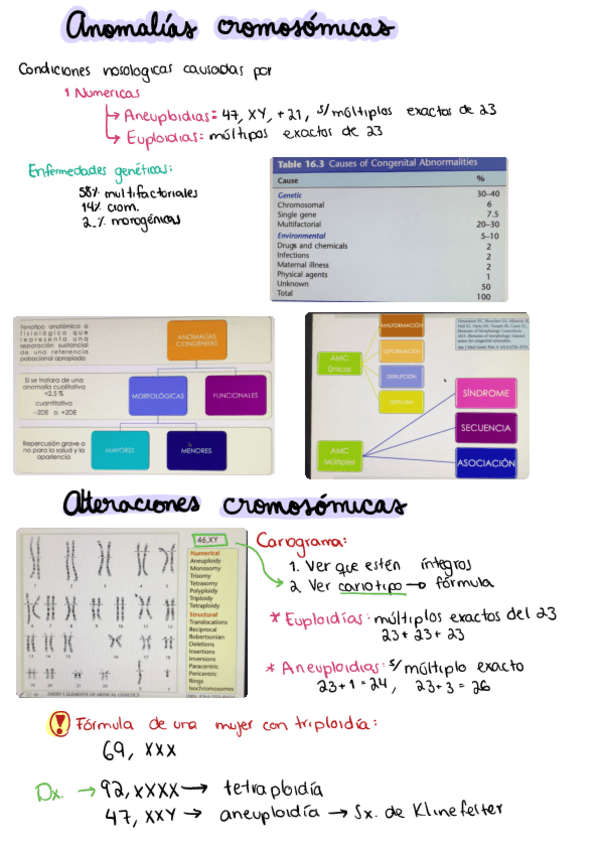 Anomalías cromosómicas
Condiciones nosologicas causadas por
1 Numericas
↳ Aneuploidias: 47, XY, +21, s/múltiplos exactos de 23
↳ Euploidias: múltipos exactos de 23
Enfermedades genéticas:
58% multifactoriales
14% crom.
2.% monogénicas
Table 16.3 Causes of Congenital Abnormalities
Cause %
Genetic 30–40
Chromosomal 6
Single gene 7.5
Multifactorial 20–30
Environmental 5–10
Drugs and chemicals 2
Infections 2
Maternal illness 2
Physical agents 1
Unknown 50
Total 100
Fenotipo anatómico o
fisiológico que
representa una
separación sustancial
de una referencia
poblacional apropiada
ANOMALÍAS
CONGÉNITAS
Si se trata de una
anomalía cualitativa
<2.5 %
cuantitativa
-2DE o +2DE
MORFOLÓGICAS
FUNCIONALES
Repercusión grave o
no para la salud y la
apariencia
MAYORES
MENORES
MALFORMACIÓN
DEFORMACIÓN
DISRUPCIÓN
AMC
Únicas
AMC
Múltiples
SÍNDROME
SECUENCIA
ASOCIACIÓN
Alteraciones cromosómicas
46,XY
Numerical
Aneuploidy
Monosomy
Trisomy
Tetrasomy
Polyploidy
Triploidy
Tetraploidy
Structural
Translocations
Reciprocal
Robertsonian
Deletions
Insertions
Inversions
Paracentric
Pericentric
Rings
Isochromosomes
1 2 3 4 5
6 7 8 9 10 11 12
13 14 15 16 17 18
19 20 21 22
EMERY'S ELEMENTS OF MEDICAL GENETICS
Cariograma:
1. Ver que estén íntegros
2. Ver cariotipo → fórmula
* Euploidías: múltiplos exactos del 23
23+23+23
* Aneuploidias: s/ múltiplo exacto
23+1=24, 23+3=26
! Fórmula de una mujer con triploidía:
69, XXX
Dx. → 92, XXXX → tetraploidía
47, XXY → aneuploidía → Sx. de Klinefelter